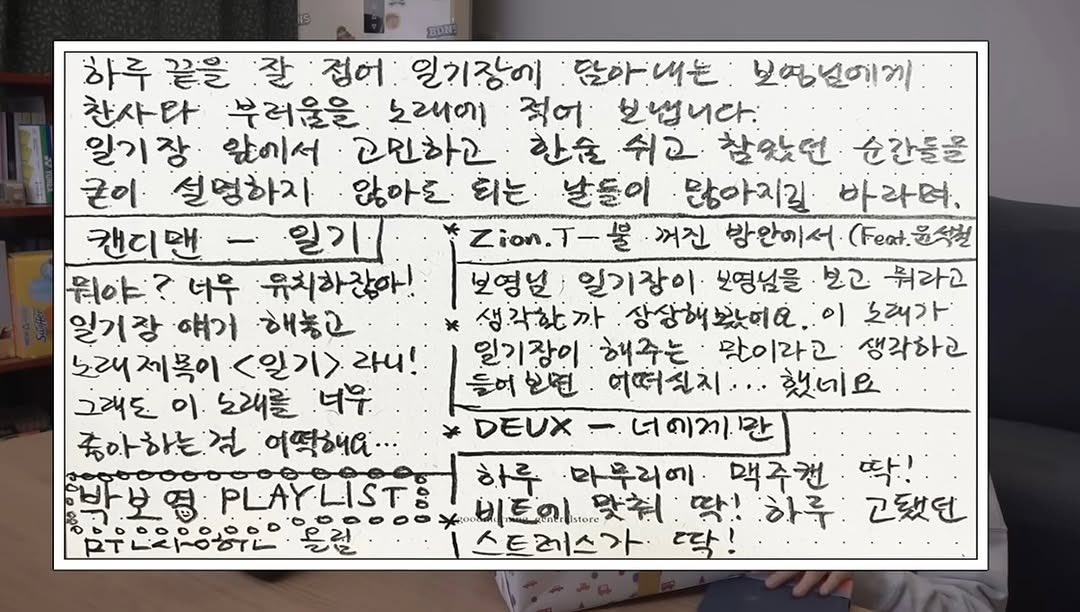 하루 끝을 잘 접어 일기장에 담아내는 보영님에게
찬사다 부러움을 노래에 적어 보냅니다.
일기장 앞에서 고민하고 한숨 쉬고 참았던 순간들을
굳이 설명하지 않아도 되는 날들이 많아지길 바라며.
캔디맨 - 일기
뭐야? 너무 유치하잖아!
일기장 얘기 해놓고
노래제목이 <일기> 라니!
그래도 이 노래를 너무
좋아하는걸 어떡해요...
박보영 PLAYLIST
올림
* Zion.T - 불 꺼진 방안에서 (Feat.윤석철
보영님 일기장이 보영님을 보고 뭐라고
* 생각할까 상상해봤어요. 이 노래가
일기장이 해주는 말이라고 생각하고
들어보면 어떠실지... 했네요
* DEUX - 너에게만
하루 마무리에 맥주캔 딱!
* 비트에 맞춰 딱! 하루 고됐던
스트레스가 딱!
goodmorning_generalstore
Swiffer